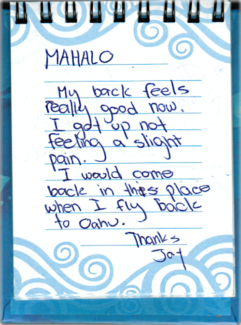 MAHALO
My back feels
really good now.
I got up not
feeling a slight
pain.
I would come
back in this place
when I fly back
to Oahu.
Thanks
Jay